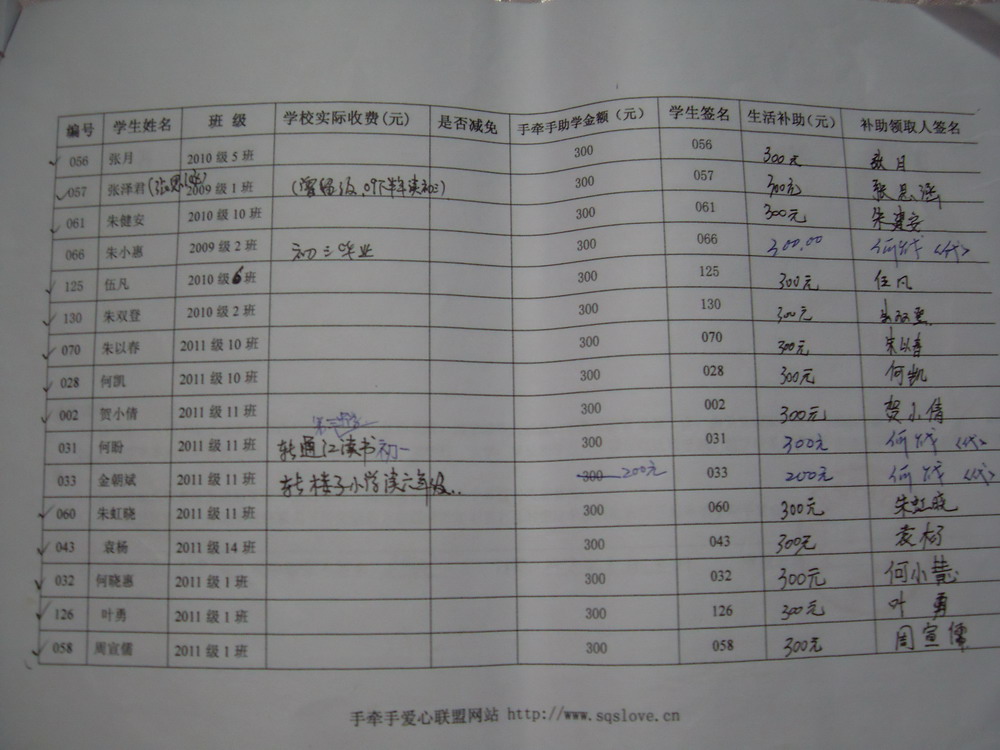 编号 学生姓名 班 级 学校实际收费(元) 是否减免 手牵手助学金额（元） 学生签名 生活补助(元) 补助领取人签名
✓ 056 张月 2010 级 5 班 300 056 300元 张月
✓ 057 张泽君(张思涵) 2009 级 1 班 (曾留级,09下半年读初三) 300 057 300元 张思涵
✓ 061 朱健安 2010 级 10 班 300 061 300元 朱健安
066 朱小惠 2009 级 2 班 初三毕业 300 066 300.00 何 <代>
✓ 125 伍凡 2010 级 6 班 300 125 300元 伍凡
✓ 130 朱双登 2010 级 2 班 300 130 300元 朱双登
✓ 070 朱以春 2011 级 10 班 300 070 300元 朱以春
✓ 028 何凯 2011 级 10 班 300 028 300元 何凯
002 贺小倩 2011 级 11 班 300 002 300元 贺小倩
031 何盼 2011 级 11 班 转通江读书初一 300 031 300元 何 <代>
033 金朝斌 2011 级 11 班 转 子小学读六年级.. 300 200元 033 200元 何 <代>
✓ 060 朱虹晓 2011 级 11 班 300 060 300元 朱虹晓
✓ 043 袁杨 2011 级 14 班 300 043 300元 袁杨
✓ 032 何晓惠 2011 级 1 班 300 032 300元 何小慧
✓ 126 叶勇 2011 级 1 班 300 126 300元 叶勇
✓ 058 周宣儒 2011 级 1 班 300 058 300元 周宣儒
手牵手爱心联盟网站 http://www.sqslove.cn